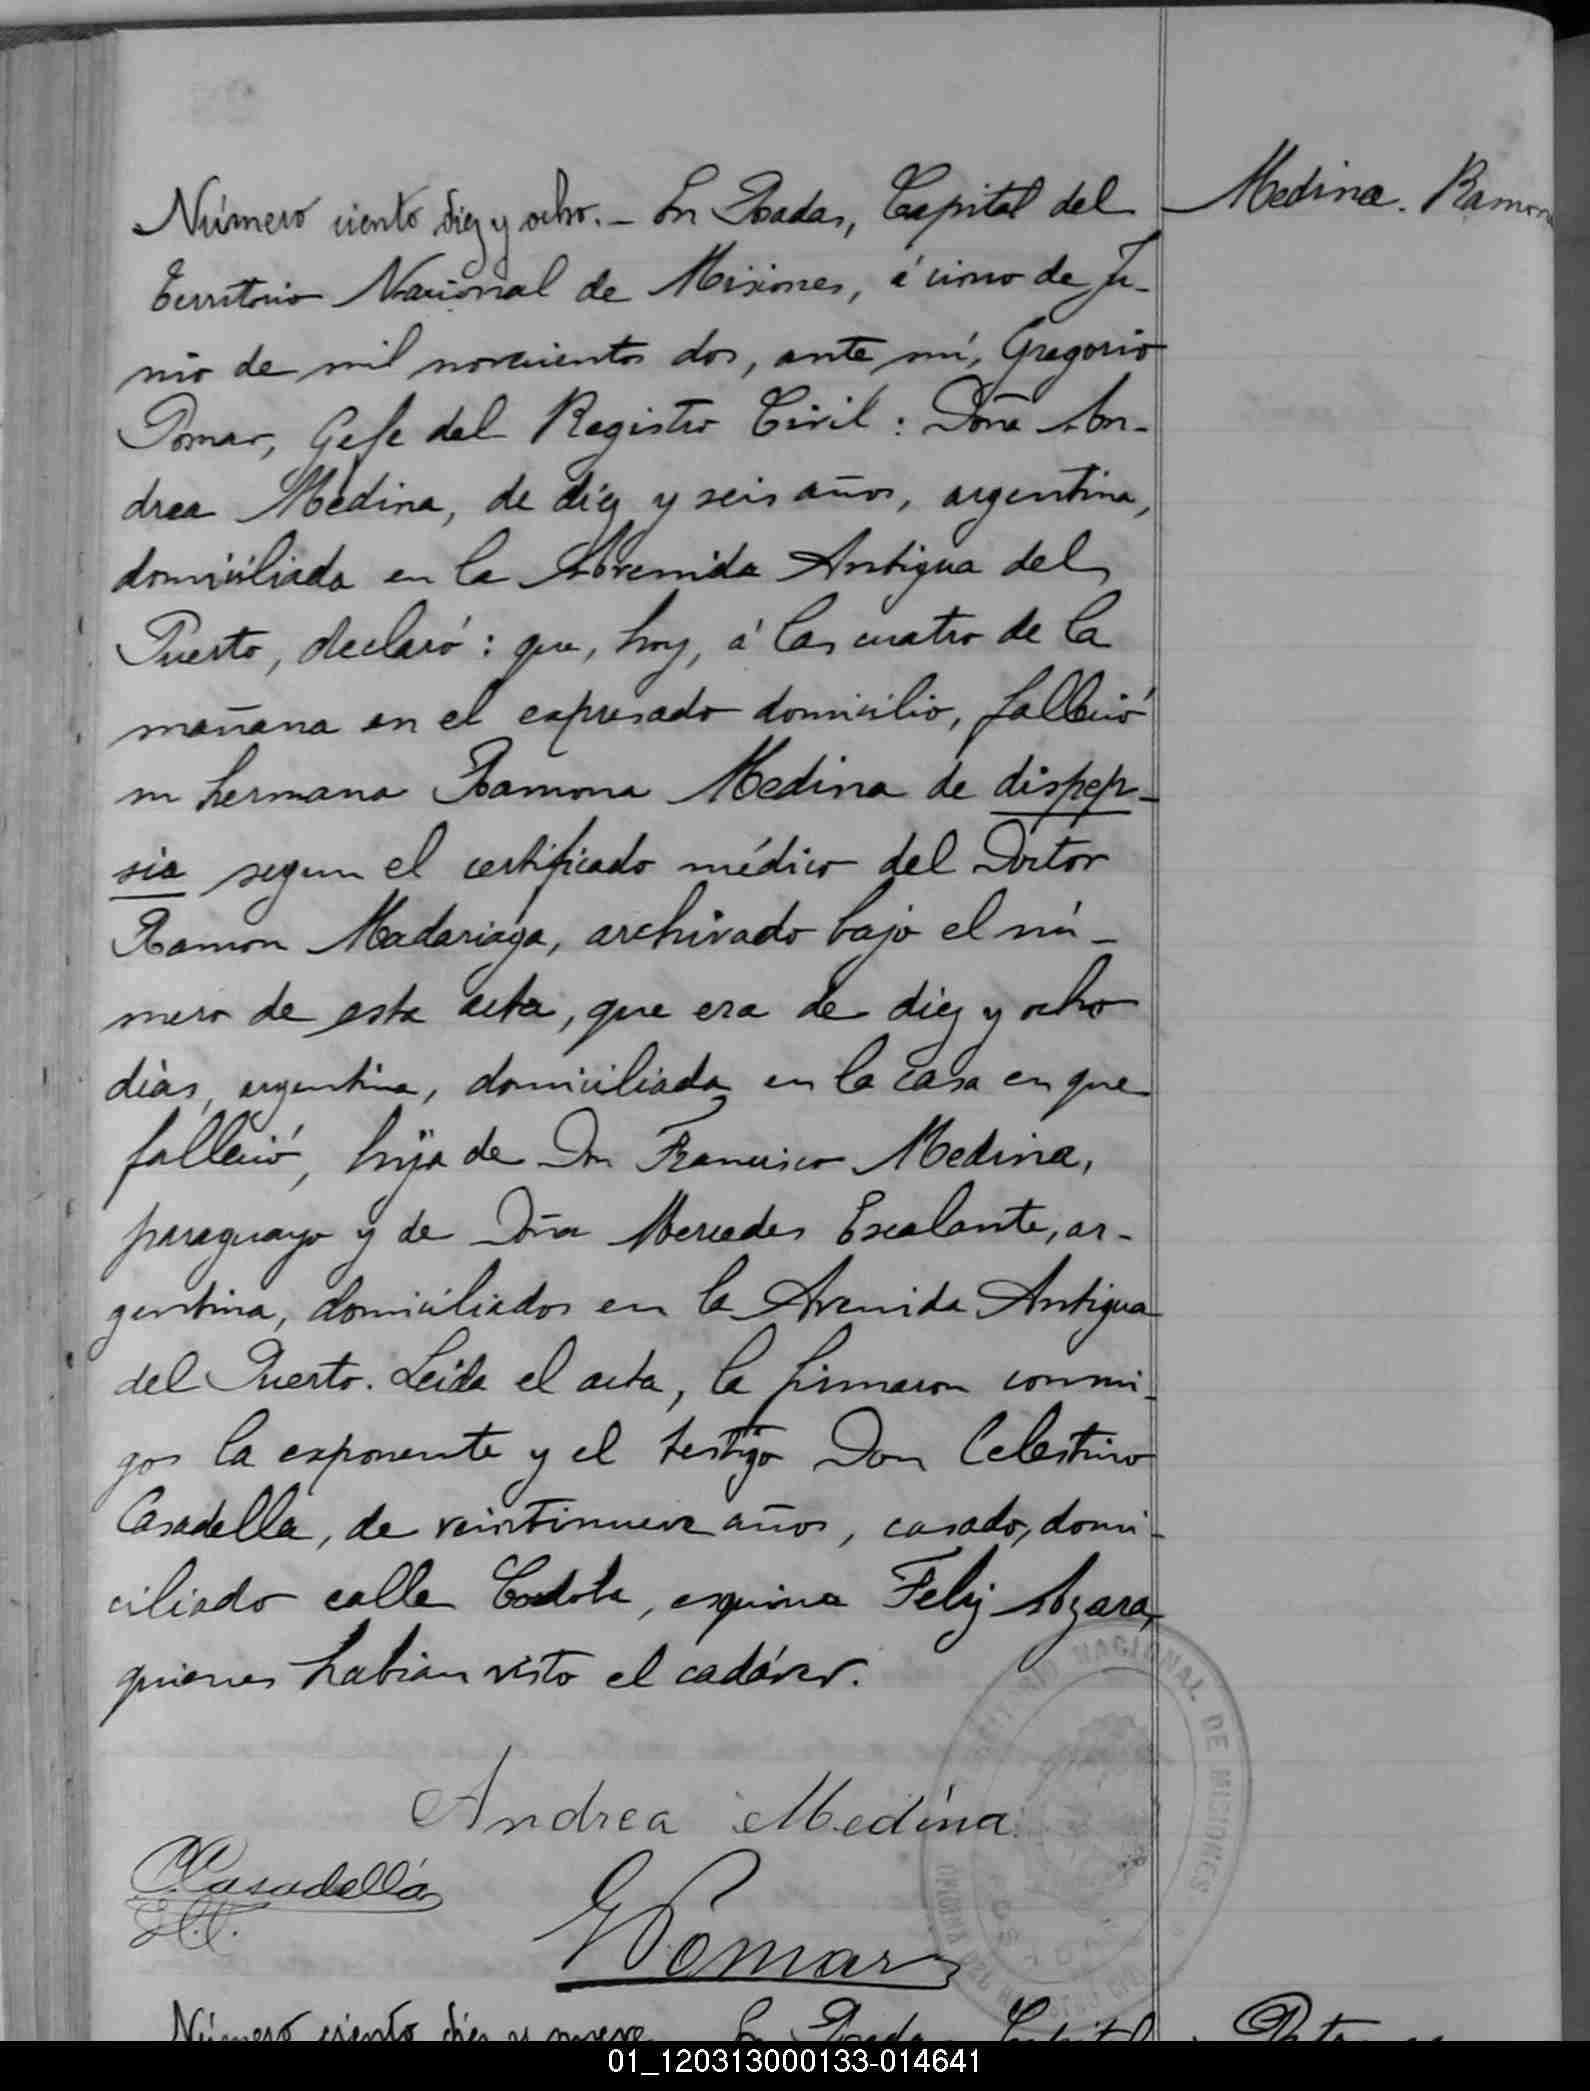 Número ciento diez y ocho. – En Posadas, Capital del
Medina. Ramona
Territorio Nacional de Misiones, á cinco de Ju-
nio de mil novecientos dos, ante mí, Gregorio
Pomar, Gefe del Registro Civil: Doña An-
drea Medina, de diez y seis años, argentina,
domiciliada en la Avenida Antigua del
Puerto, declaró: que, hoy, á las cuatro de la
mañana en el expresado domicilio, falleció
su hermana Ramona Medina de dispep-
sia segun el certificado médico del Doctor
Ramon Madariaga, archivado bajo el nú-
mero de esta acta, que era de diez y ocho
dias, argentina, domiciliada en la casa en que
falleció, hija de Don Francisco Medina,
paraguayo y de Doña Mercedes Escalante, ar-
gentina, domiciliados en la Avenida Antigua
del Puerto. Leida el acta, la firmaron conmi-
go la exponente y el testigo Don Celestino
Casadella, de veintinueve años, casado, domi-
ciliado calle esquina Feliz Azara,
quienes habian visto el cadáver.
NACIONAL DE MISIONES
Andrea Medina
C. Casadellá
G Pomar
Número ciento diez y nueve En Posadas Capital
01_120313000133-014641